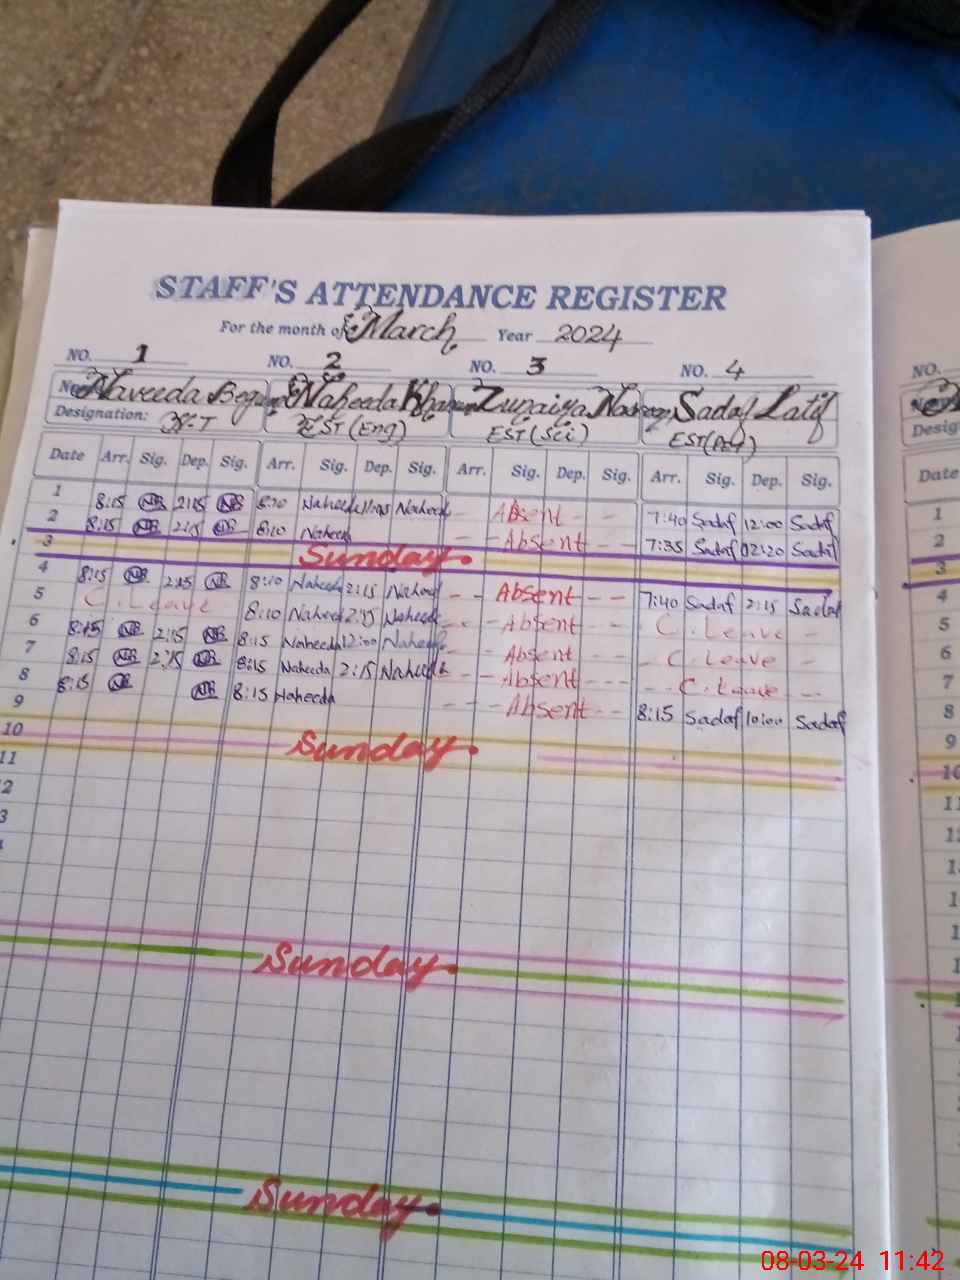 STAFF'S ATTENDANCE REGISTER
For the month of March Year 2024
NO. 1 NO. 2 NO. 3 NO. 4 NO.
Naveeda Begum Naheeda Khanum Zunaiya Sadaf Latif
Designation: EST (Eng) EST (Sci) EST (
Date Arr. Sig. Dep. Sig. Arr. Sig. Dep. Sig. Arr. Sig. Dep. Sig. Arr. Sig. Dep. Sig. Date
1 8:15 NB 2:15 NB 8:10 Naheeda Naheeda - Absent - - 7:40 Sadaf 12:00 Sadaf 1
2 8:15 NB 2:15 NB 8:10 Naheeda - - Absent - - 7:35 Sadaf 02:20 Sadaf 2
3 Sunday. 3
4 8:15 NB 2:15 NB 8:10 Naheeda 2:15 Naheed - - Absent - - 7:40 Sadaf 2:15 Sadaf 4
5 C. Leave 8:10 Naheed 2:15 Naheeda - - Absent - - C. Leave - 5
6 8:15 NB 2:15 NB 8:15 Naheeda 12:00 Naheeda Absent - - C. Leave - 6
7 8:15 NB 2:15 NB 8:15 Naheeda 2:15 Naheeda - - Absent - - - - C. Leave - - 7
8 8:15 NB NB 8:15 Naheeda - - - Absent - - 8:15 Sadaf 10:00 Sadaf 8
9 9
10 Sunday. 10
11 11
2
3
Sunday.
Sunday.
08-03-24 11:42